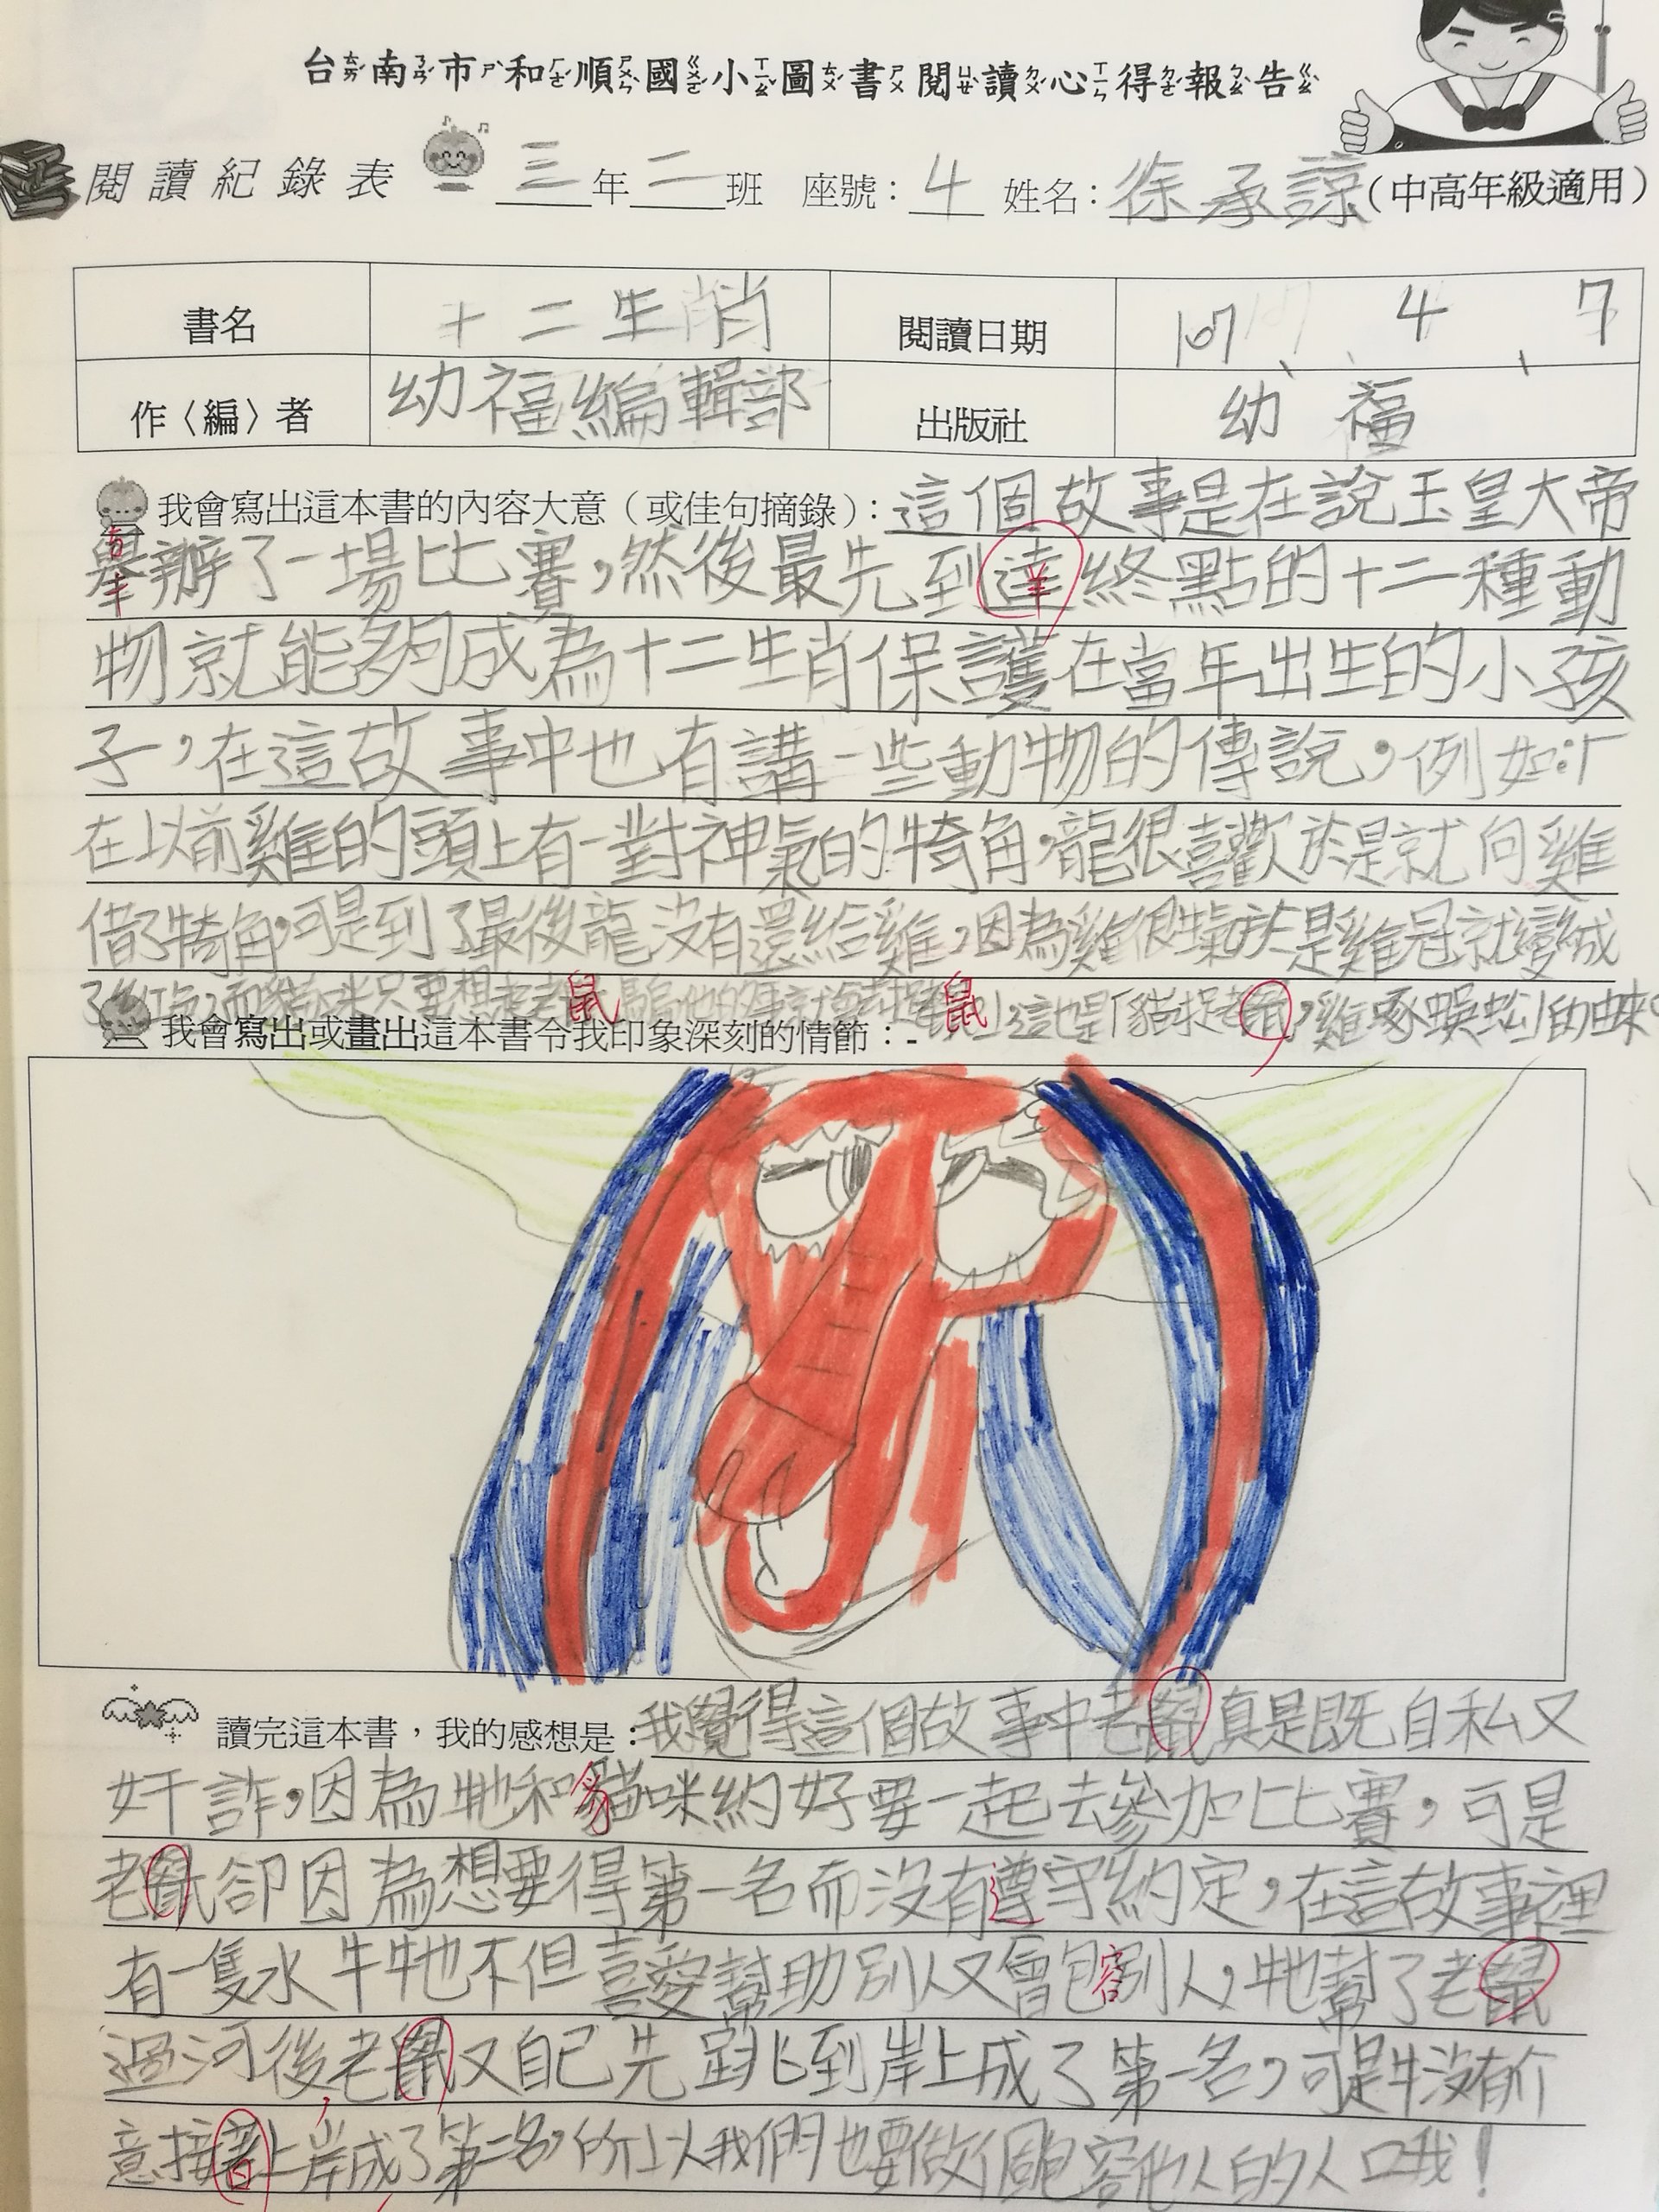 台南市和順國小圖書閱讀心得報告
閱讀紀錄表 三年二班 座號：4 姓名：徐承諒（中高年級適用）
書名 十二生肖 閱讀日期 107、4、7
作〈編〉者 幼福編輯部 出版社 幼福
我會寫出這本書的內容大意（或佳句摘錄）：這個故事是在說玉皇大帝
舉辦了一場比賽，然後最先到達終點的十二種動
物就能夠成為十二生肖保護在當年出生的小孩
子，在這故事中也有講一些動物的傳說，例如：「
在以前雞的頭上有一對神氣的犄角，龍很喜歡於是就向雞
借了犄角，可是到了最後龍沒有還給雞，因為雞很生氣於是雞冠就變成
了紅色，而貓咪只要想起老鼠騙他的事就會去捉老鼠」這也是「貓捉老鼠，雞啄蜈蚣」的由來。
我會寫出或畫出這本書令我印象深刻的情節：
讀完這本書，我的感想是：我覺得這個故事中老鼠真是既自私又
奸詐，因為牠和貓咪約好要一起去參加比賽，可是
老鼠卻因為想要得第一名而沒有遵守約定，在這故事裡
有一隻水牛牠不但喜愛幫助別人又會包容別人，牠幫了老鼠
過河後，老鼠又自己先跳到岸上成了第一名，可是牛沒有介
意接著上岸成了第二名，所以我們也要做個包容他人的人哦！